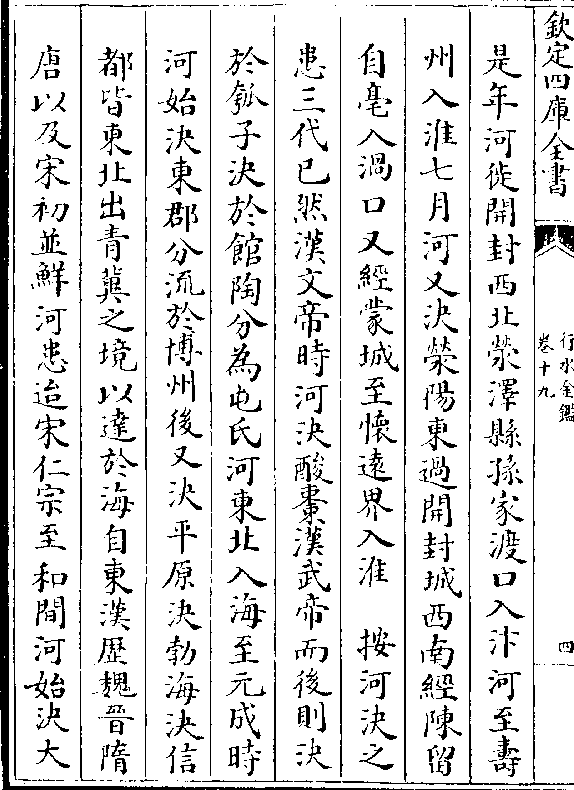 欽定四庫全書
行水金鑑
卷十九
四
是年河徙開封西北滎澤縣孫家渡口入汴河至壽
州入淮七月河又決滎陽東過開封城西南經陳留
自亳入渦口又經蒙城至懷遠界入淮　按河決之
患三代已然漢文帝時河決酸棗漢武帝而後則決
於瓠子決於館陶分為屯氏河東北入海至元成時
河始決東郡分流於博州後又決平原決勃海決信
都皆東北出青冀之境以達於海自東漢歷魏晉隋
唐以及宋初並鮮河患迨宋仁宗至和間河始決大